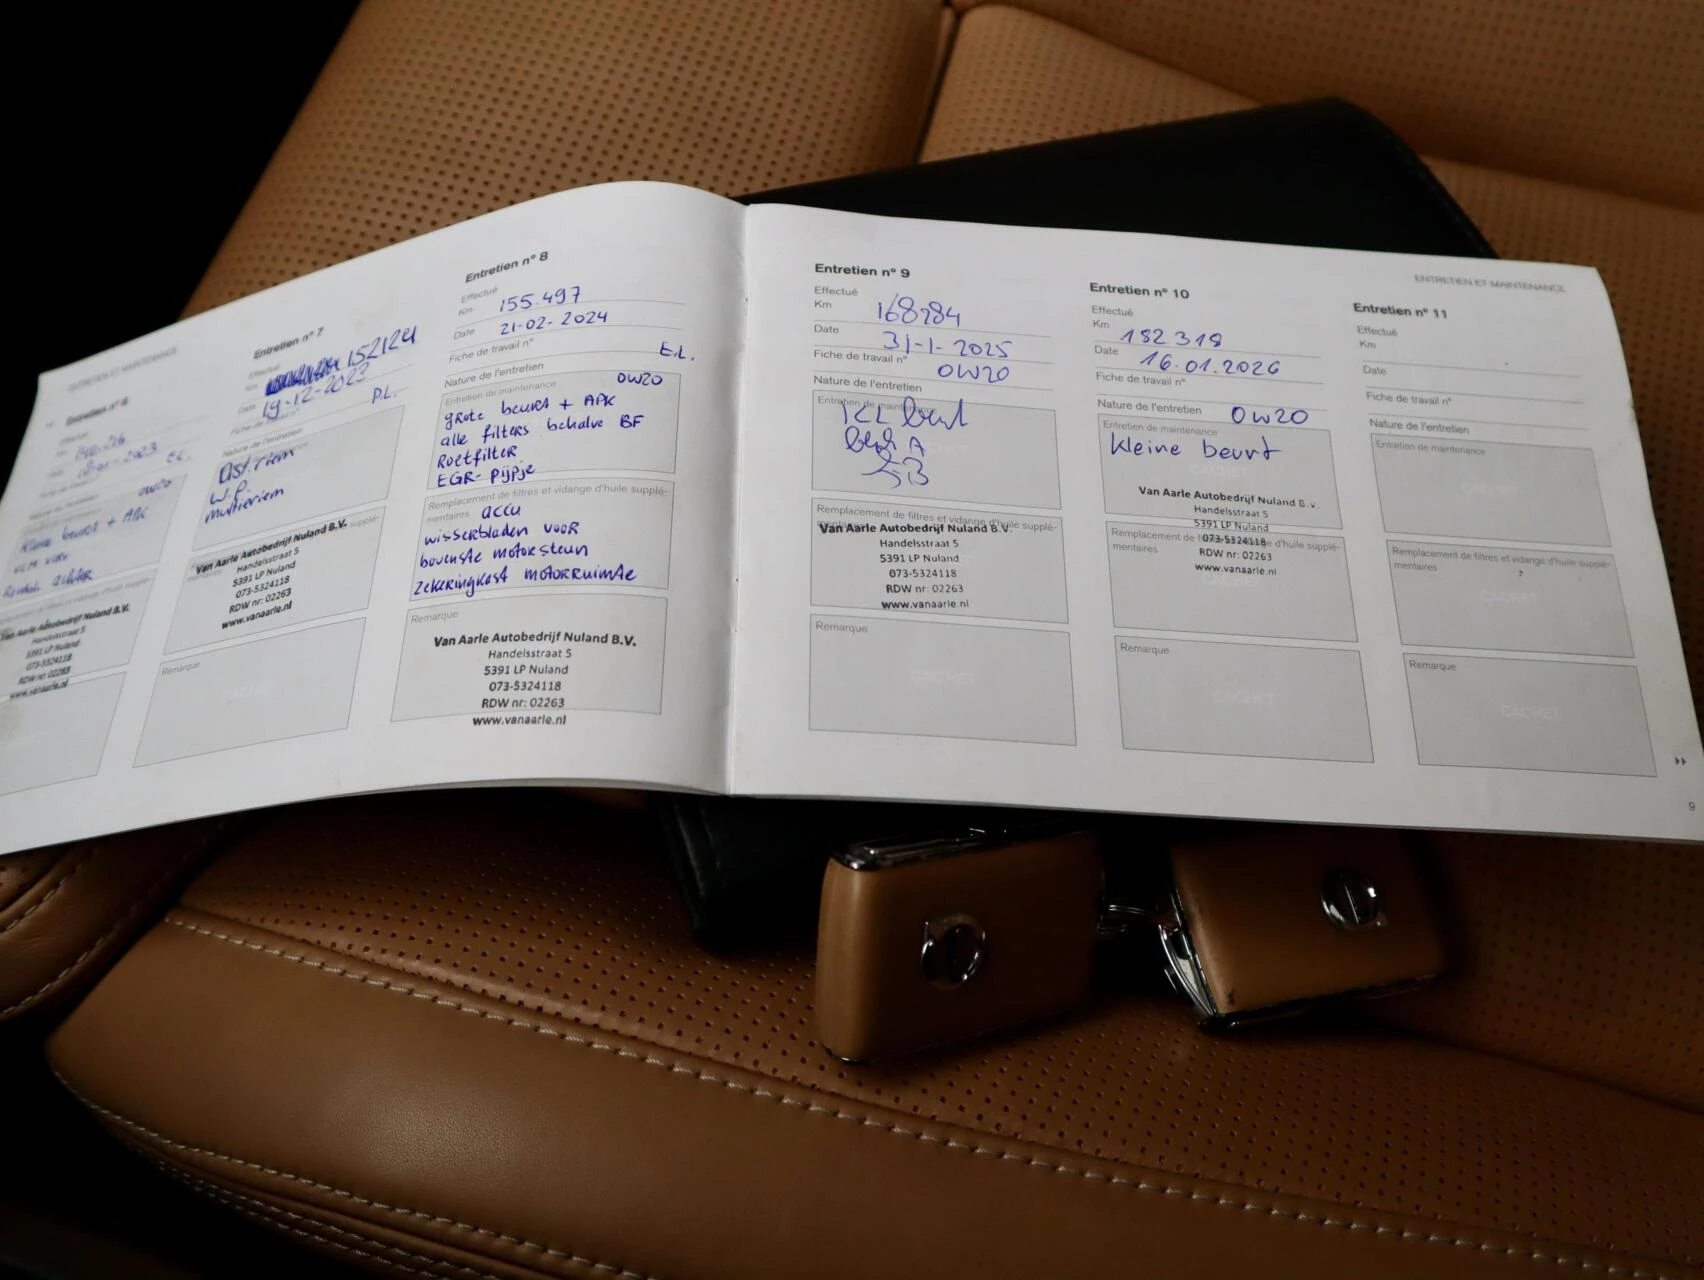 ENTRETIEN ET MAINTENANCE
Entretien n° 6
2023
E.L.
0W20
kleine beurt + APK
achter
Van Aarle Autobedrijf Nuland B.V.
Handelsstraat 5
5391 LP Nuland
073-5324118
RDW nr: 02263
www.vanaarle.nl
Entretien n° 7
Effectué
Km 152124
Date 19-12-2023
Fiche de travail n°
P.L.
Nature de l'entretien
Dist. riem
W.P.
multiriem
Van Aarle Autobedrijf Nuland B.V.
Handelsstraat 5
5391 LP Nuland
073-5324118
RDW nr: 02263
www.vanaarle.nl
Remarque
CACHET
Entretien n° 8
Effectué
Km 155.497
Date 21-02-2024
Fiche de travail n°
E.L.
Nature de l'entretien
0W20
Entretien de maintenance
grote beurt + APK
alle filters behalve BF
Roetfilter
EGR-pijpje
Remplacement de filtres et vidange d'huile supplé-
mentaires accu
wisserbladen voor
bovenste motorsteun
Zekeringkast motorruimte
Remarque
Van Aarle Autobedrijf Nuland B.V.
Handelsstraat 5
5391 LP Nuland
073-5324118
RDW nr: 02263
www.vanaarle.nl
Entretien n° 9
Effectué
Km 168284
Date 31-1-2025
Fiche de travail n°
0W20
Nature de l'entretien
Entretien de maintenance
KL beurt
CACHET
Remplacement de filtres et vidange d'huile supplé-
Van Aarle Autobedrijf Nuland B.V.
Handelsstraat 5
5391 LP Nuland
073-5324118
RDW nr: 02263
www.vanaarle.nl
Remarque
CACHET
ENTRETIEN ET MAINTENANCE
Entretien n° 10
Effectué
Km 182318
Date 16.01.2026
Fiche de travail n°
Nature de l'entretien 0w20
Entretien de maintenance
kleine beurt
CACHET
Van Aarle Autobedrijf Nuland B.V.
Handelsstraat 5
5391 LP Nuland
Remplacement de filtres et vidange d'huile supplé-
mentaires
073-5324118
RDW nr: 02263
www.vanaarle.nl
Remarque
CACHET
Entretien n° 11
Effectué
Km
Date
Fiche de travail n°
Nature de l'entretien
Entretien de maintenance
CACHET
Remplacement de filtres et vidange d'huile supplé-
mentaires
CACHET
Remarque
CACHET
9